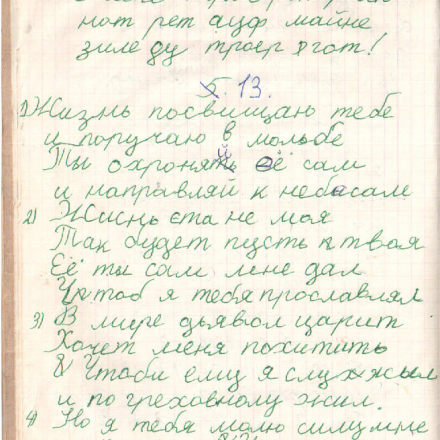 нот рет ауф майне
зиле ду троер гот!
Б. 13.
1) Жизнь посвищаю тебе
и поручаю в мольбе
Ты охроняй её сам
и направляй к небесам
2) Жиснь ета не моя
Так будет пусть твоя
Её ты сам мне дал
Чтоб я тебя прославлял
3) В мире дьявол царит
Хочет меня похитить
Чтоби ему я служжыл
и по греховному жил.
4) Но я тебя молю силу мне